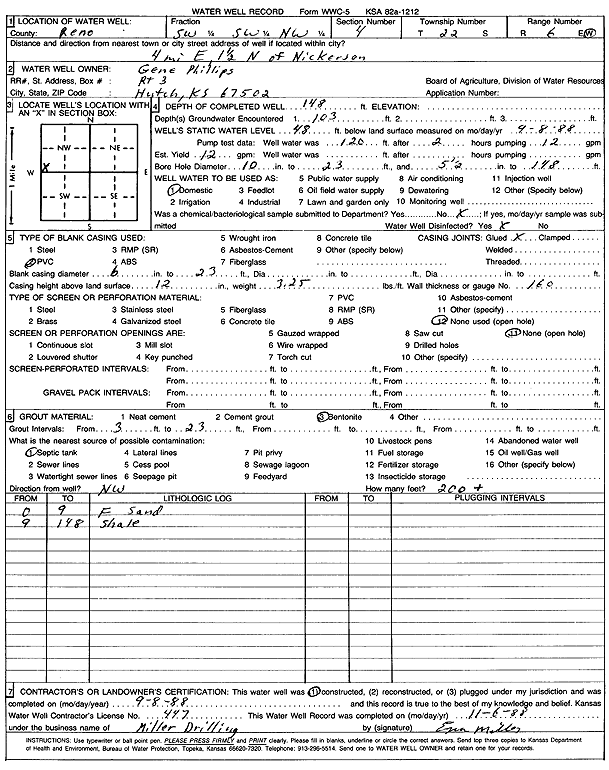 WATER WELL RECORD Form WWC-5 KSA 82a-1212
1 LOCATION OF WATER WELL: Fraction Section Number Township Number Range Number
County: Reno SW ¼ SW ¼ NW ¼ 4 T 22 S R 6 E/W
Distance and direction from nearest town or city street address of well if located within city?
4 mi E 1½ N of Nickerson
2 WATER WELL OWNER: Gene Phillips
RR#, St. Address, Box # : Rt 3 Board of Agriculture, Division of Water Resources
City, State, ZIP Code : Hutch, KS 67502 Application Number:
3 LOCATE WELL'S LOCATION WITH AN "X" IN SECTION BOX:
N
NW NE
1 Mile W X E
SW SE
S
4 DEPTH OF COMPLETED WELL 148 ft. ELEVATION:
Depth(s) Groundwater Encountered 1. 103 ft. 2. ft. 3. ft.
WELL'S STATIC WATER LEVEL 48 ft. below land surface measured on mo/day/yr 9-8-88
Pump test data: Well water was 120 ft. after 2 hours pumping 12 gpm
Est. Yield 12 gpm: Well water was ft. after hours pumping gpm
Bore Hole Diameter 10 in. to 23 ft., and 5½ in. to 148 ft.
WELL WATER TO BE USED AS: 5 Public water supply 8 Air conditioning 11 Injection well
1 Domestic 3 Feedlot 6 Oil field water supply 9 Dewatering 12 Other (Specify below)
2 Irrigation 4 Industrial 7 Lawn and garden only 10 Monitoring well
Was a chemical/bacteriological sample submitted to Department? Yes No X ; If yes, mo/day/yr sample was sub-
mitted Water Well Disinfected? Yes X No
5 TYPE OF BLANK CASING USED: 5 Wrought iron 8 Concrete tile CASING JOINTS: Glued X Clamped
1 Steel 3 RMP (SR) 6 Asbestos-Cement 9 Other (specify below) Welded
2 PVC 4 ABS 7 Fiberglass Threaded
Blank casing diameter 6 in. to 23 ft., Dia in. to ft., Dia in. to ft.
Casing height above land surface 12 in., weight 3.25 lbs./ft. Wall thickness or gauge No. 160
TYPE OF SCREEN OR PERFORATION MATERIAL: 7 PVC 10 Asbestos-cement
1 Steel 3 Stainless steel 5 Fiberglass 8 RMP (SR) 11 Other (specify)
2 Brass 4 Galvanized steel 6 Concrete tile 9 ABS 12 None used (open hole)
SCREEN OR PERFORATION OPENINGS ARE: 5 Gauzed wrapped 8 Saw cut 11 None (open hole)
1 Continuous slot 3 Mill slot 6 Wire wrapped 9 Drilled holes
2 Louvered shutter 4 Key punched 7 Torch cut 10 Other (specify)
SCREEN-PERFORATED INTERVALS: From ft. to ft., From ft. to ft.
From ft. to ft., From ft. to ft.
GRAVEL PACK INTERVALS: From ft. to ft., From ft. to ft.
From ft. to ft., From ft. to ft.
6 GROUT MATERIAL: 1 Neat cement 2 Cement grout 3 Bentonite 4 Other
Grout Intervals: From 3 ft. to 23 ft., From ft. to ft., From ft. to ft.
What is the nearest source of possible contamination: 10 Livestock pens 14 Abandoned water well
1 Septic tank 4 Lateral lines 7 Pit privy 11 Fuel storage 15 Oil well/Gas well
2 Sewer lines 5 Cess pool 8 Sewage lagoon 12 Fertilizer storage 16 Other (specify below)
3 Watertight sewer lines 6 Seepage pit 9 Feedyard 13 Insecticide storage
Direction from well? NW How many feet? 200 +
FROM TO LITHOLOGIC LOG FROM TO PLUGGING INTERVALS
0 9 F Sand
9 148 Shale
7 CONTRACTOR'S OR LANDOWNER'S CERTIFICATION: This water well was (1) constructed, (2) reconstructed, or (3) plugged under my jurisdiction and was
completed on (mo/day/year) 9-8-88 and this record is true to the best of my knowledge and belief. Kansas
Water Well Contractor's License No. 447 This Water Well Record was completed on (mo/day/yr) 11-6-88
under the business name of Miller Drilling by (signature) Miller
INSTRUCTIONS: Use typewriter or ball point pen. PLEASE PRESS FIRMLY and PRINT clearly. Please fill in blanks, underline or circle the correct answers. Send top three copies to Kansas Department
of Health and Environment, Bureau of Water Protection, Topeka, Kansas 66620-7320. Telephone: 913-296-5514. Send one to WATER WELL OWNER and retain one for your records.